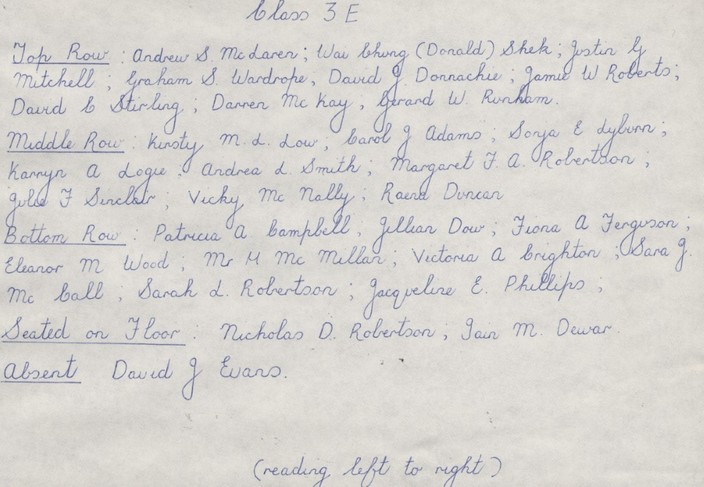 Class 3 E
Top Row : Andrew S. McLaren ; Wai Chung (Donald) Shek ; Justin G
Mitchell ; Graham S. Wardrope, David J. Donnachie ; Jamie W Roberts ;
David C Stirling ; Darren Mc Kay , Gerard W. Runham.
Middle Row : Kirsty M. L. Low , Carol J Adams ; Sonja E Lyburn ;
Karryn A Logie . Andrea L. Smith ; Margaret F. A. Robertson ;
Julie F Sinclair ; Vicky Mc Nally ; Raena Duncan
Bottom Row : Patricia A Campbell , Jillian Dow ; Fiona A Ferguson ;
Eleanor M Wood ; Mr H Mc Millan ; Victoria A Crighton ; Sara J.
Mc Call ; Sarah L. Robertson ; Jacqueline E. Phillips ;
Seated on Floor : Nicholas D. Robertson , Iain M. Dewar.
Absent David J Evans.
(reading left to right)